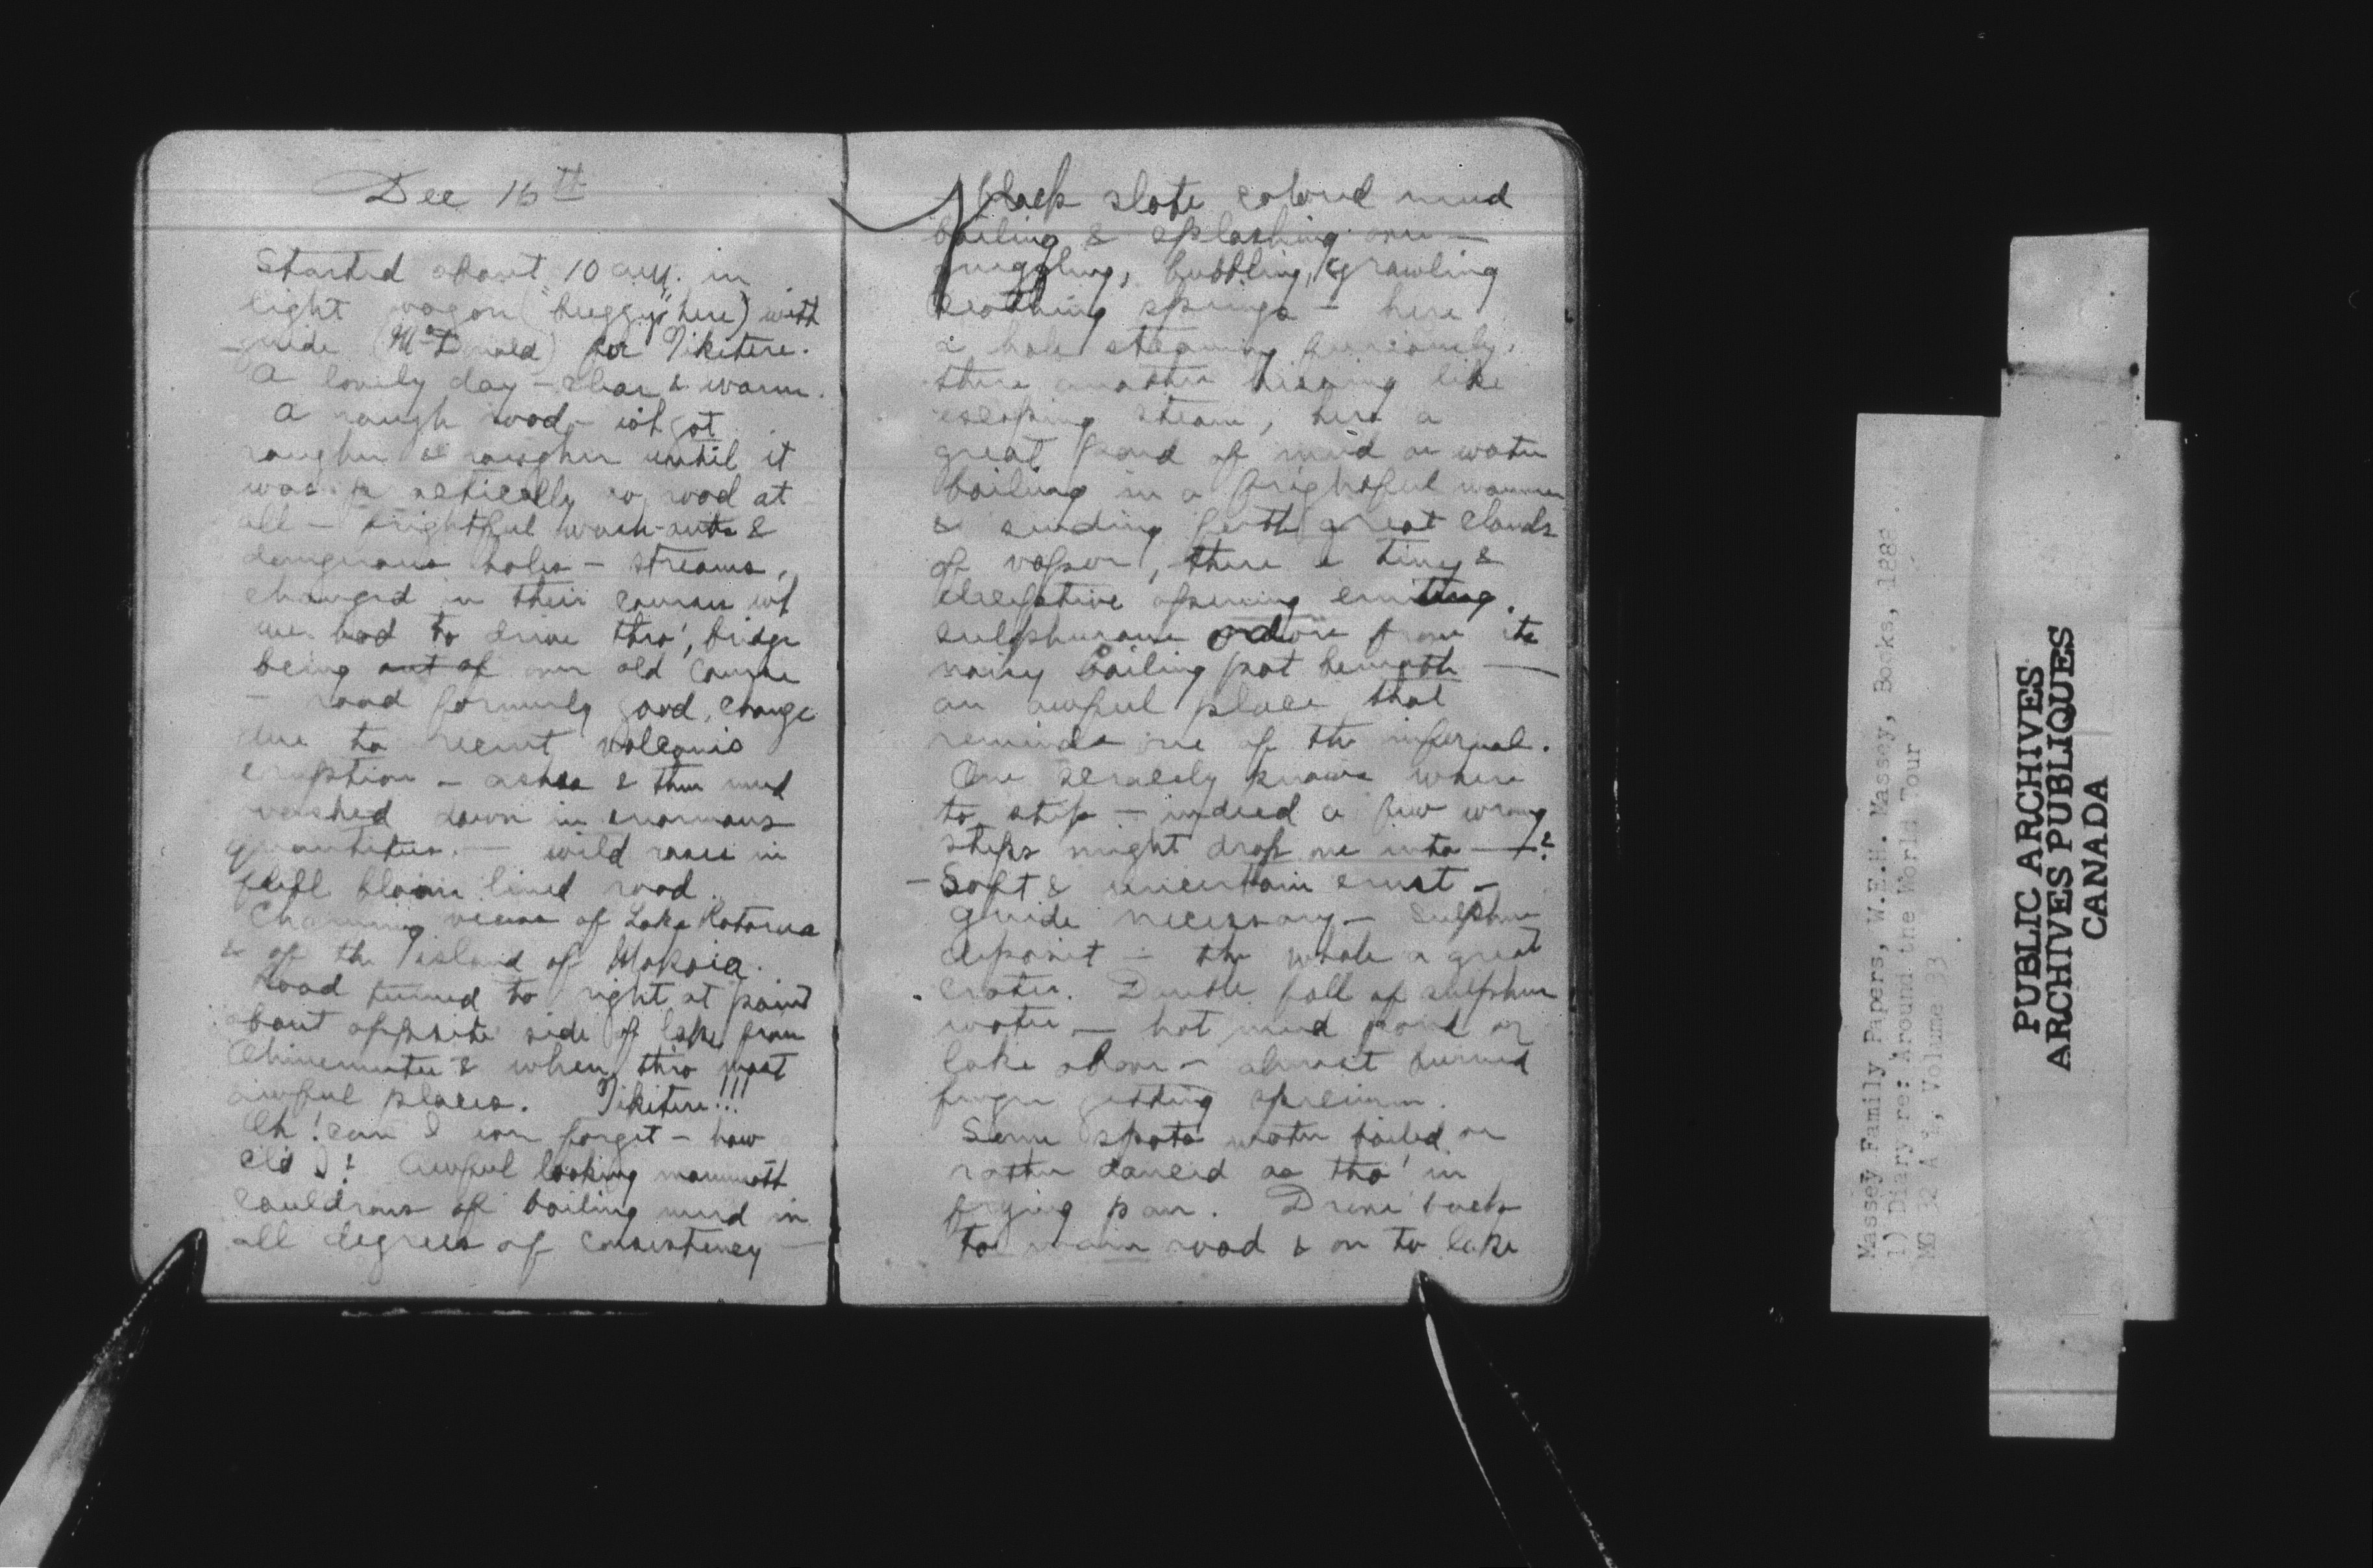 Dec 16th
Started about 10 a.m. in
light wagon ("buggy" here) with
guide (McDonald) for Tikitere.
A lovely day – clear & warm.
A rough road – wh got
rougher & rougher until it
was practically no road at
all – frightful wash-outs &
dangerous holes – streams,
changed in their courses wh
we had to drive thro', bridge
being out of our old course
– road formerly good, change
due to recent volcanic
eruption – ashes & thin mud
washed down in enormous
quantities. – wild roses in
full bloom lined road.
Charming views of Lake Rotorua
& of the island of Mokoia.
Road turned to right at point
about opposite side of lake from
Ohinemutu & when thro most
awful places. Tikitere!!!
Oh! can I ever forget – how
did I! Awful looking mammoth
cauldrons of boiling mud in
all degrees of consistency –
black slate colored mud
boiling & splashing over –
guggling, bubbling, & growling
seothing springs – here
a hole steaming furiously,
there another hissing like
escaping steam, here a
great pond of mud or water
boiling in a frightful manner
& sending forth great clouds
of vapor, there a tiny &
deceptive opening emitting
sulphurous odors from its
noisy boiling pot beneath –
an awful place that
reminds one of the infernal.
One scarcely knows where
to step – indeed a few wrong
steps might drop one into – ?
– Soft & uncertain crust –
guide necessary – Sulphur
deposit – the whole a great
crater. Double fall of sulphur
water – hot mud pond or
lake above – almost burned
finger getting specimen.
Some spots water boiled or
rather danced as tho' in
frying pan. Drove back
to main road & on to lake
Massey Family Papers, W.E.H. Massey, Books, 188
1) Diary re: Around the World Tour
MG 32 A 1, Volume 33
PUBLIC ARCHIVES
ARCHIVES PUBLIQUES
CANADA